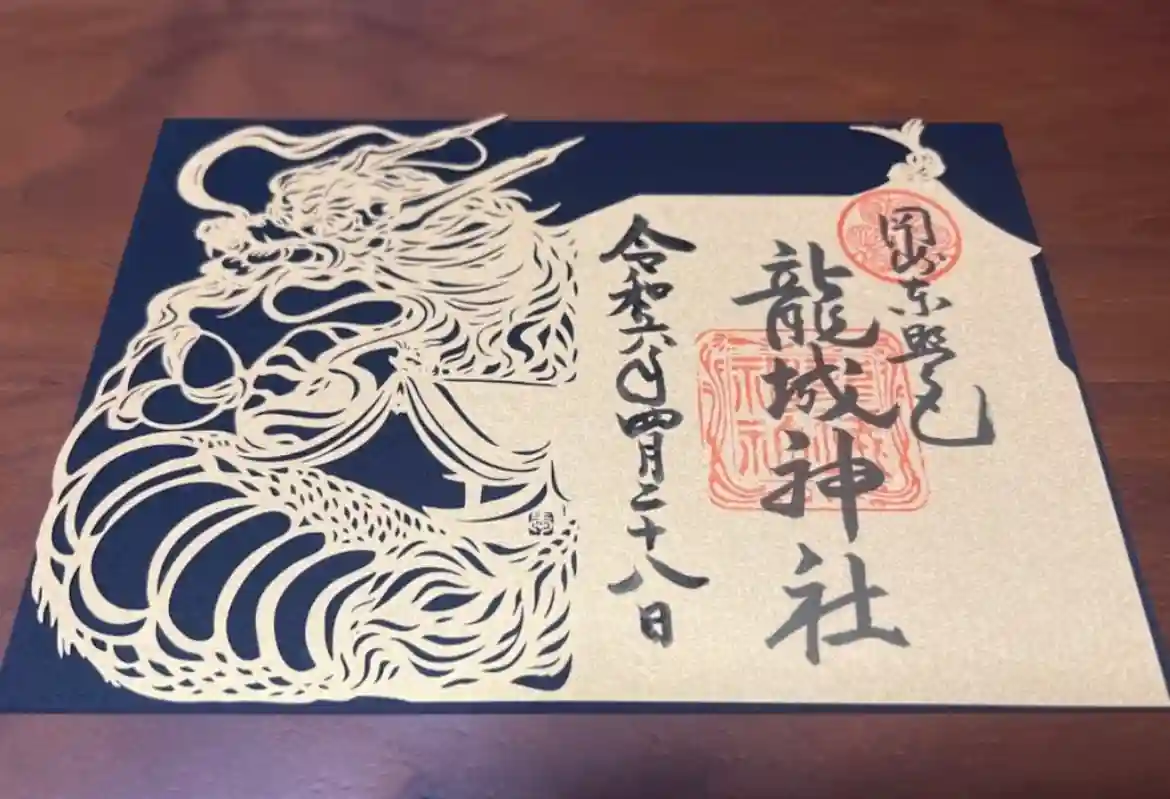 岡崎東照宮
龍城神社
令和六年四月二十八日